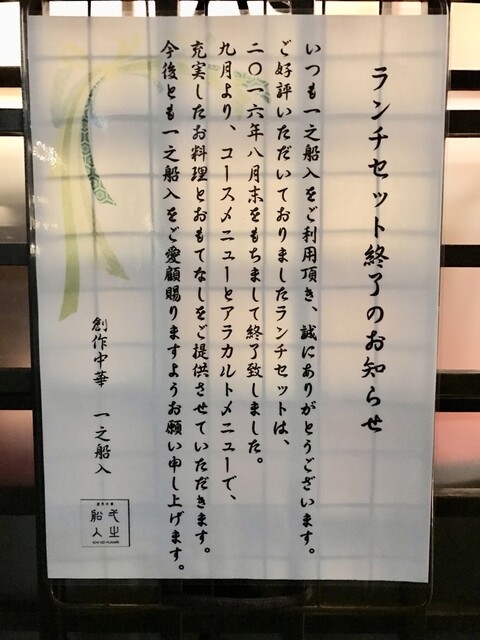 ランチセット終了のお知らせ
いつも一之船入をご利用頂き、誠にありがとうございます。
ご好評いただいておりましたランチセットは、
二〇一六年八月末をもちまして終了致しました。
九月より、コースメニューとアラカルトメニューで、
充実したお料理とおもてなしをご提供させていただきます。
今後とも一之船入をご愛顧賜りますようお願い申し上げます。
創作中華 一之船入
一之
船入
ICHI NO HUNAIRI